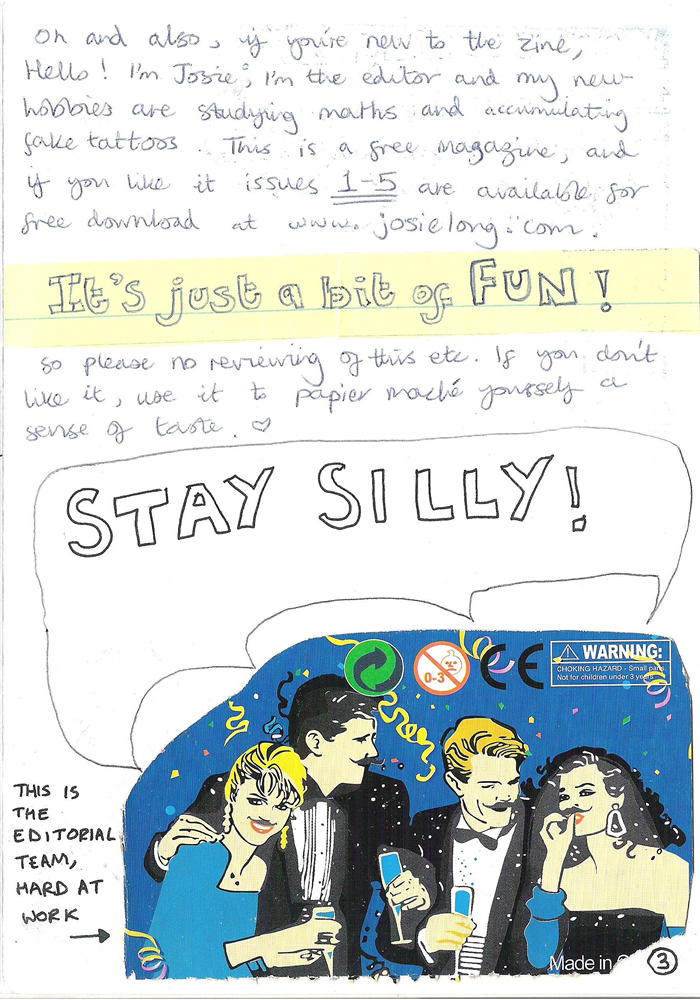 Oh and also, if you're new to the zine,
Hello! I'm Josie, I'm the editor and my new
hobbies are studying maths and accumulating
fake tattoos. This is a free magazine, and
if you like it issues 1-5 are available for
free download at www.josielong.com.
It's just a bit of FUN!
so please no reviewing of this etc. If you don't
like it, use it to papier maché yourself a
sense of taste. ♡
STAY SILLY!
0-3
CE
WARNING:
CHOKING HAZARD - Small parts
Not for children under 3 years
THIS IS
THE
EDITORIAL
TEAM,
HARD AT
WORK
Made in
3